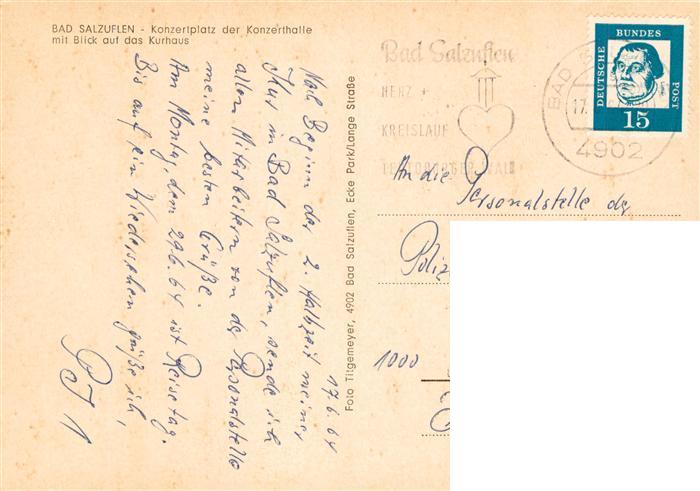 BAD SALZUFLEN - Konzertplatz der Konzerthalle
mit Blick auf das Kurhaus
17.6.64
Nach Beginn der 2. Halbzeit meiner
Kur in Bad Salzuflen, sende ich
allen Mitarbeitern von der Personalstelle
meine besten Grüße.
Am Montag, dem 29.6.64 ist Reisetag.
Bis auf ein Wiedersehen grüße ich,
Foto Titgemeyer, 4902 Bad Salzuflen, Ecke Park/Lange Straße
Bad Salzuflen
HERZ +
KREISLAUF
TEUTOBURGER WALD
BAD
17.
4902
DEUTSCHE BUNDES POST
15
An die Personalstelle der
Poliz
1000